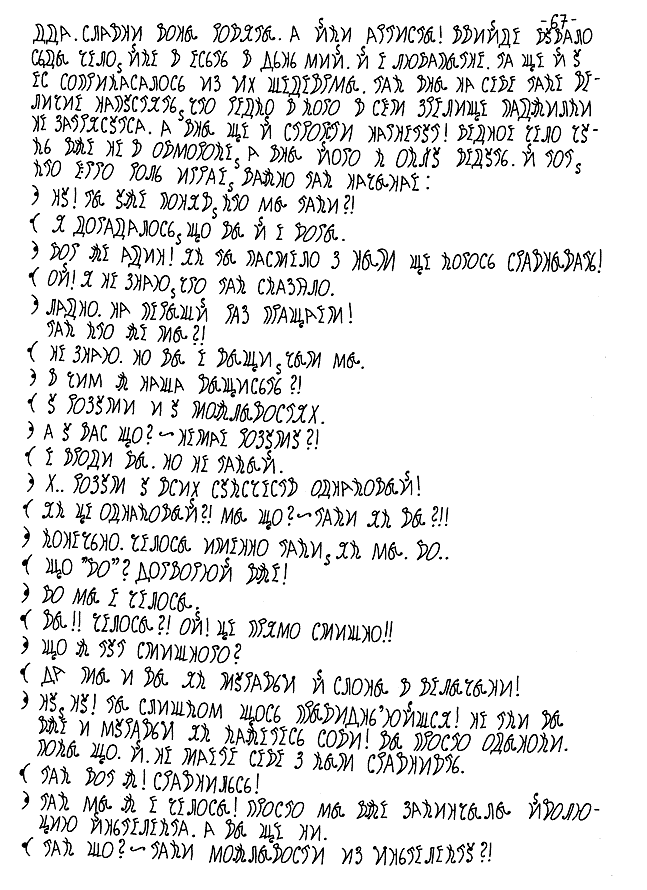 -67-
ДДА. СЛАВНИ ВОНЫ РОБЯТЫ. А ЙКИ АРТИСТЫ! ВВИЙДЕ БУВАЛО
СЬДЫ ЧЕЛО, ЙКЕ В ЕСЬТЬ В ДЬНЬ МИЙ. Й Е ЛЮБАПЫТНЕ. ТА ЩЕ Й У
ЕС СОПРИКАСАЛОСЬ ИЗ ИХ ШЕДЕВРМЫ. ТАК ВНЫ НА СЕБЕ ТАКЕ ВЕ-
ЛИЧИЕ НАПУСТЯТЬ, ЧТО РЕДКО В КОГО В СЕМ ЗРЕЛИЩЕ ПАДЖИЛКИ
НЕ ЗАТРЯСУТСА. А ВНЫ ЩЕ Й НАГНЕТУТ! БЕДНОЕ ЧЕЛО ЧУ-
ТЬ ВЖЕ НЕ В ОБМОРОКЕ, А ВНЫ ЙОГО К ОКНУ ВЕДУТЬ. Й ТОТ,
КТО РОЛЬ ИГРАЕ, ВАЖНО ТАК НАЧЫНАЕ:
) НУ! ТЫ УЖЕ ПОНЯВ, КТО МЫ ТАКИ?!
( Я ДОГАДАЛОСЬ, ЩО ВЫ Й Е БОГЫ.
) ВОТ ЖЕ АДИН! ЯК ТЫ ПАСМЕЛО З НАМИ ЩЕ КОГОСЬ СРАВНЫВАТЬ!
( ОЙ! Я НЕ ЗНАЮ, ЧТО ТАК СКАЗЯЛО.
) ЛАДНО. НА ПЕРВЫЙ РАЗ ПРАЩАЕМ!
ТАК КТО ЖЕ МЫ?!
( НЕ ЗНАЮ. НО ВЫ Е ВЫЩИ, ЧЫМ МЫ.
) В ЧИМ Ж НАША ВЫЩИСЬТЬ?!
( У РОЗУМИ И У МОЖЛЫВОСТЯХ.
) А У ВАС ЩО? ~ НЕМАЕ РОЗУМУ?!
( Е ВРОДИ БЫ. НО НЕ ТАКЫЙ.
) Х.. РОЗУМ У ВСИХ СУЖСЧЕСТВ ОДНАКОВЫЙ!
( ЯК ЦЕ ОДНАКОВЫЙ?! МЫ ЩО? ~ ТАКИ ЯК ВЫ?!!
) КОНЕЧЬНО. ЧЕЛОСЫ ИМЕННО ТАКИ, ЯК МЫ. БО..
( ЩО "БО"? ДОГВОРЮЙ ВЖЕ!
) БО МЫ Е ЧЕЛОСЫ.
( ВЫ!! ЧЕЛОСЫ?! ОЙ! ЦЕ ПРЯМО СМИШНО!!
) ЩО Ж ТУТ СМИШНОГО?
( ДР МЫ И ВЫ ЯК МУРАВЬИ Й СЛОНЫ В ВЕЛЫЧЫНИ!
) НУ, НУ! ТЫ СЛИШКОМ ЩОСЬ ПРЫБИДНЬ'ЮЙШСЯ! НЕ ТКИ ВЫ
ВЖЕ И МУРАВЬИ ЯК КАЖЕТЕСЬ СОБИ! ВЫ ПРОСТО ОДЫНОКИ.
ПОКЫ ЩО. Й НЕ МАЕТЕ СЕБЕ З КЫМ СРАВНИВТЬ.
( ТАК ВОТ Ж! СРАВНИЛЬСЬ!
) ТАК МЫ Ж Е ЧЕЛОСЫ! ПРОСТО МЫ ВЖЕ ЗАКИНЧЫЛЫ ЙВОЛЮ-
ЦИЮ ЙНЬТЕЛЕКТА. А ВЫ ЩЕ НИ.
( ТАК ЩО? ~ ТАКИ МОЖЛЫВОСТИ ИЗ ИНЬТЕЛЕКТУ?!